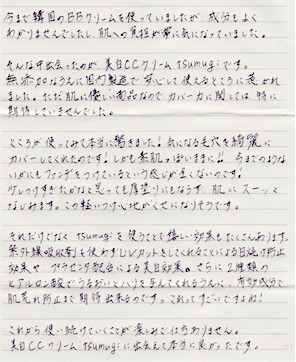 今まで韓国のBBクリームを使っていましたが 成分もよく
わかりませんでしたし、肌への負担が常に気になっていました。
そんな中出会ったのが 美白CCクリーム tsumugi です。
無添加なうえに国内製造で 安心して使えるところに惹かれ
ました。ただ 肌に優しい商品なので カバー力に関しては 特に
期待していませんでした。
ところが 使ってみて本当に驚きました! 気になる毛穴を綺麗に
カバーしてくれたのです! しかも素肌っぽいままに!! 今までのような
いかにもファンデをつけているという感じが全くないのです!
少しつけすぎたかなと思っても厚塗りにならず 肌に スーッと
なじみます。この軽いつけ心地がくせになりそうです。
それだけでなく tsumugi を使うことで嬉しい効果もたくさんあります。
紫外線吸収剤を使わずUVカットをしてくれることによる日焼け防止
効果や プラセンタ配合による美白効果。さらに 2種類の
ヒアルロン酸でうるおいとハリを与えてくれるうえに、有効成分で
肌荒れ防止まで 期待出来るのです。これってすごいですよね!
これから使い続けていくことが楽しみで仕方ありません。
美白CCクリーム tsumugi に出会えて本当に良かったです。